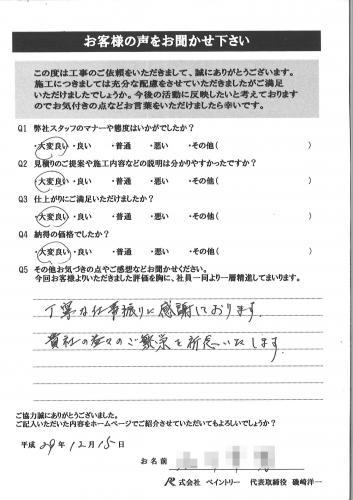 お客様の声をお聞かせ下さい
この度は工事のご依頼をいただきまして、誠にありがとうございます。
施工につきましては充分な配慮をさせていただきましたがご満足
いただけましたでしょうか。今後の活動に反映したいと考えております
のでお気付きの点などお言葉をいただけましたら幸いです。
Q1 弊社スタッフのマナーや態度はいかがでしたか?
・大変良い ・良い ・普通 ・悪い ・その他( )
Q2 見積りのご提案や施工内容などの説明は分かりやすかったですか?
・大変良い ・良い ・普通 ・悪い ・その他( )
Q3 仕上がりにご満足いただけましたか?
・大変良い ・良い ・普通 ・悪い ・その他( )
Q4 納得の価格でしたか?
・大変良い ・良い ・普通 ・悪い ・その他( )
Q5 その他お気づきの点やご感想などお聞かせください。
今回お客様よりいただきました評価を胸に、社員一同より一層精進してまいります。
丁寧な仕事振りに感謝しております。
貴社の益々のご繁栄を祈念いたします
ご協力誠にありがとうございました。
ご記入いただいた内容をホームページでご紹介させていただいてもよろしいでしょうか?
平成 29年 12月 15日
お名前
株式会社 ペイントリー 代表取締役 磯崎洋一